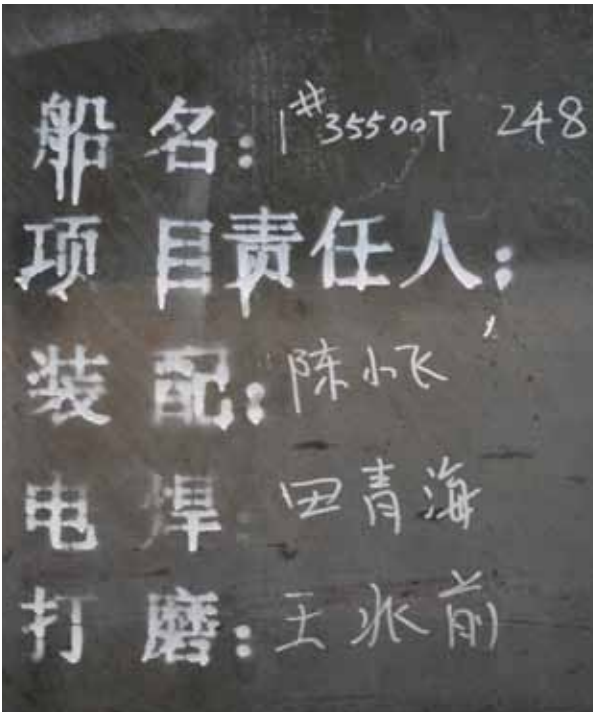 船名：1#35500T 248
项目责任人：
装配：陈小飞
电焊：田青海
打磨：王兆前